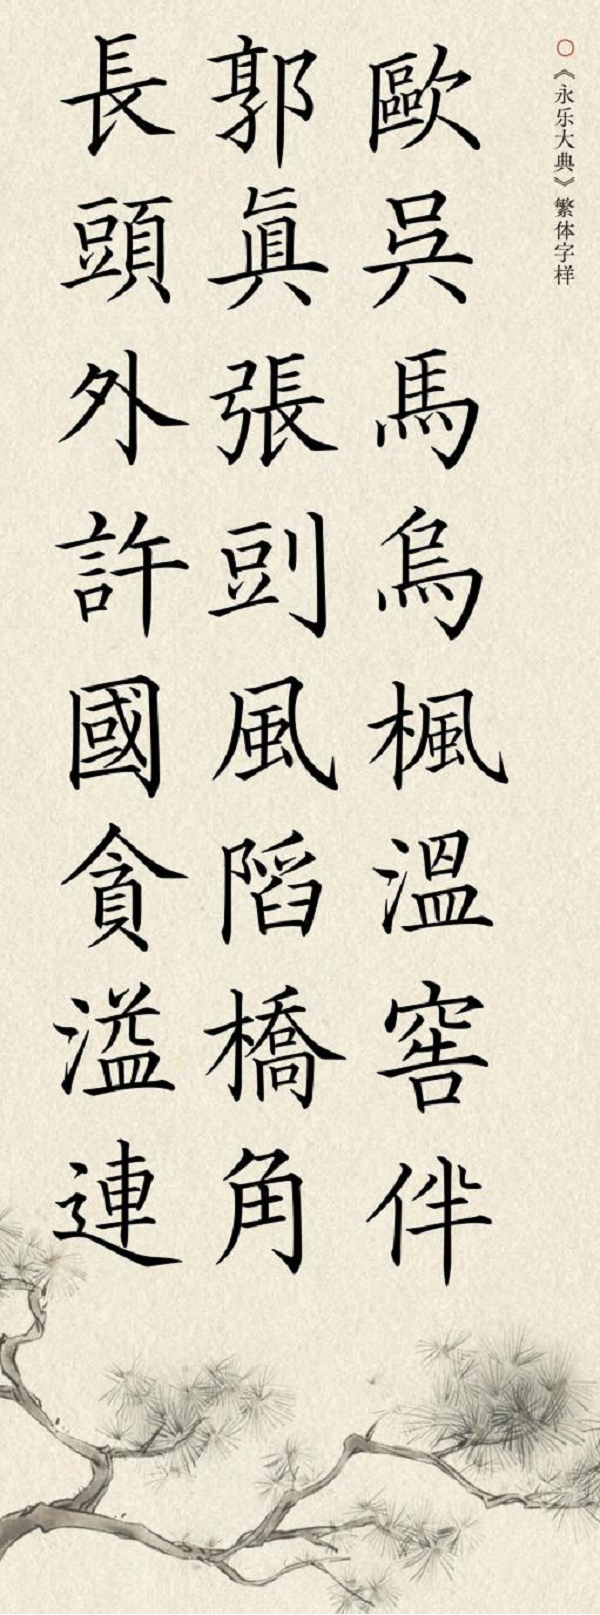 〇《永乐大典》繁体字样
歐吳馬烏楓溫窖伴
郭眞張剅風陷橋角
長頭外許國貪溢連